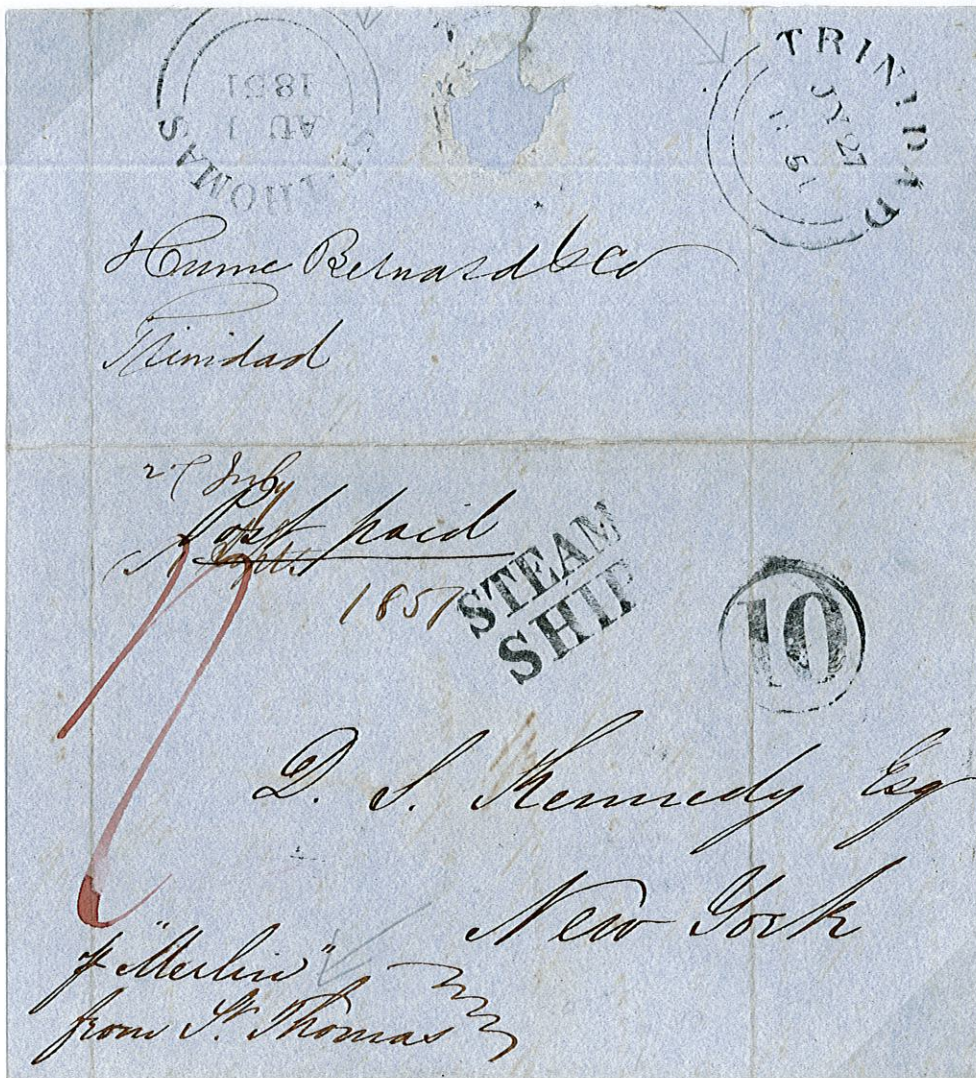 TRINIDAD
JY 27
51
ST THOMAS
AU 1
1851
Hume Bernard & Co
Trinidad
27 July
Post paid
1851
STEAM
SHIP
10
D. S. Kennedy Esq
New York
p "Merlin"
from St. Thomas